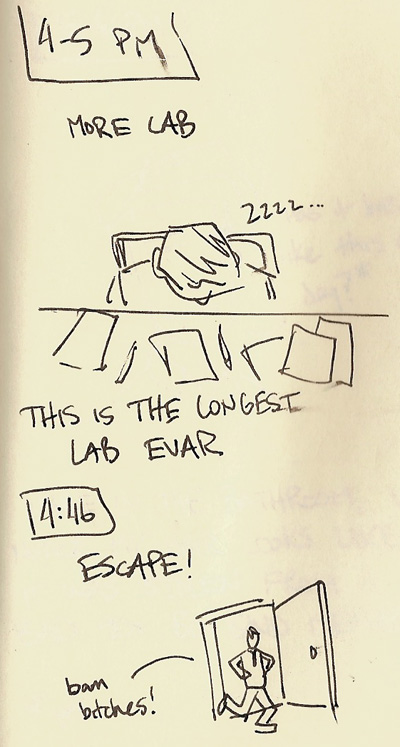 4-5 PM
MORE LAB
zzzz...
THIS IS THE LONGEST
LAB EVAR
4:46
ESCAPE!
bam
bitches!